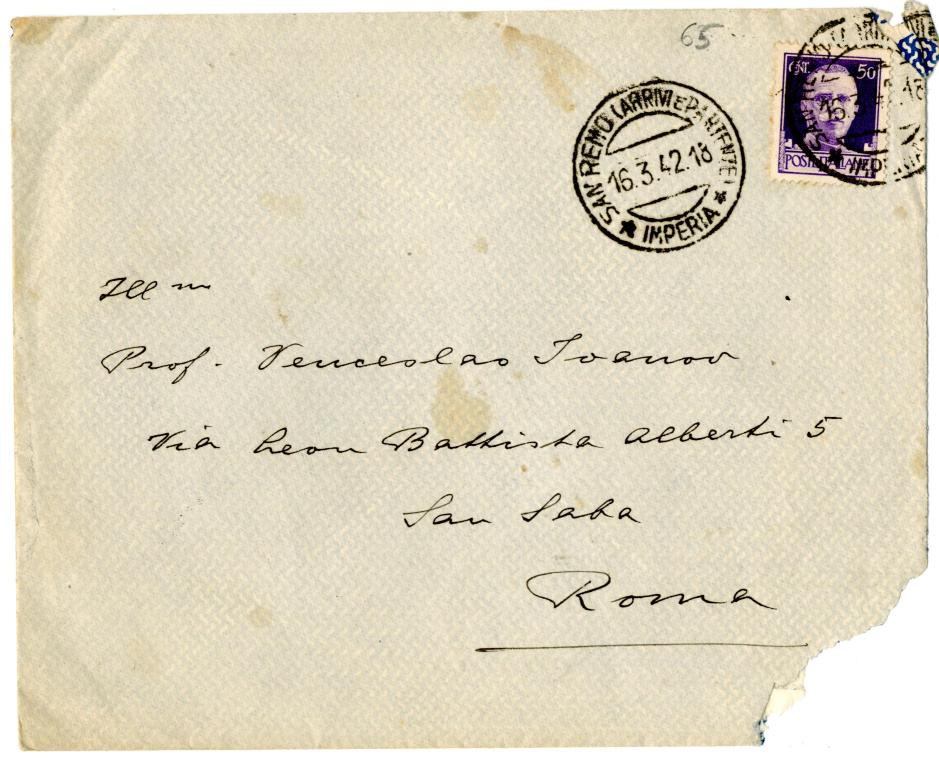 65
CNT. 50
POSTE ITALIANE
SAN REMO (ARRIVI E PARTENZE)
16.3.42.18
* IMPERIA *
Ill mo
Prof. Venceslao Ivanov
Via Leon Battista Alberti 5
San Saba
Roma